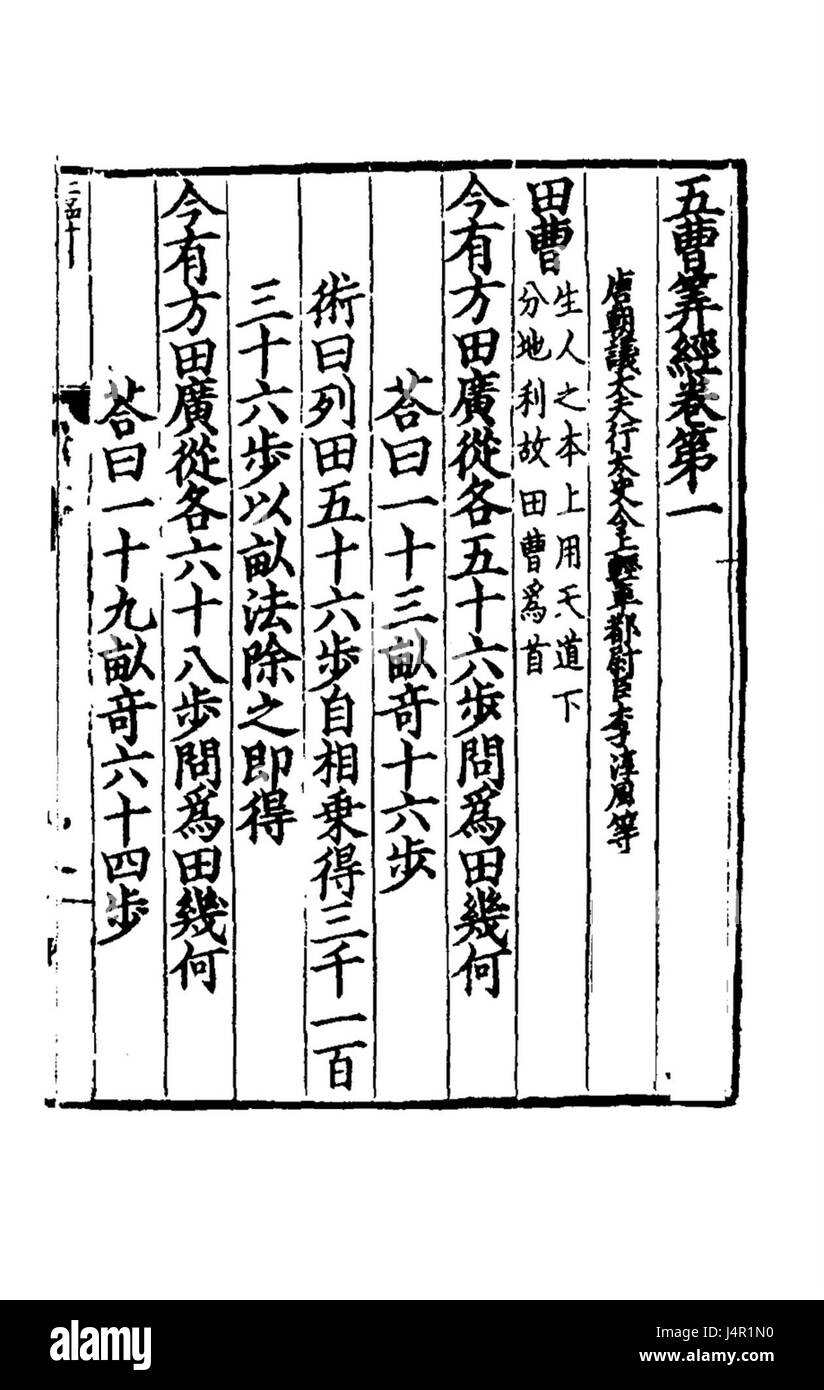 五曹筭經卷第一
唐朝議大夫行太史令上輕車都尉臣李淳風等
田曹
生人之本上用天道下
分地利故田曹爲首
今有方田廣從各五十六歩問爲田幾何
荅曰一十三畝奇十六歩
術曰列田五十六歩自相乗得三千一百
三十六歩以畝法除之即得
今有方田廣從各六十八歩問爲田幾何
荅曰一十九畝奇六十四歩
alamy
Image ID: J4R1N0
www.alamy.com